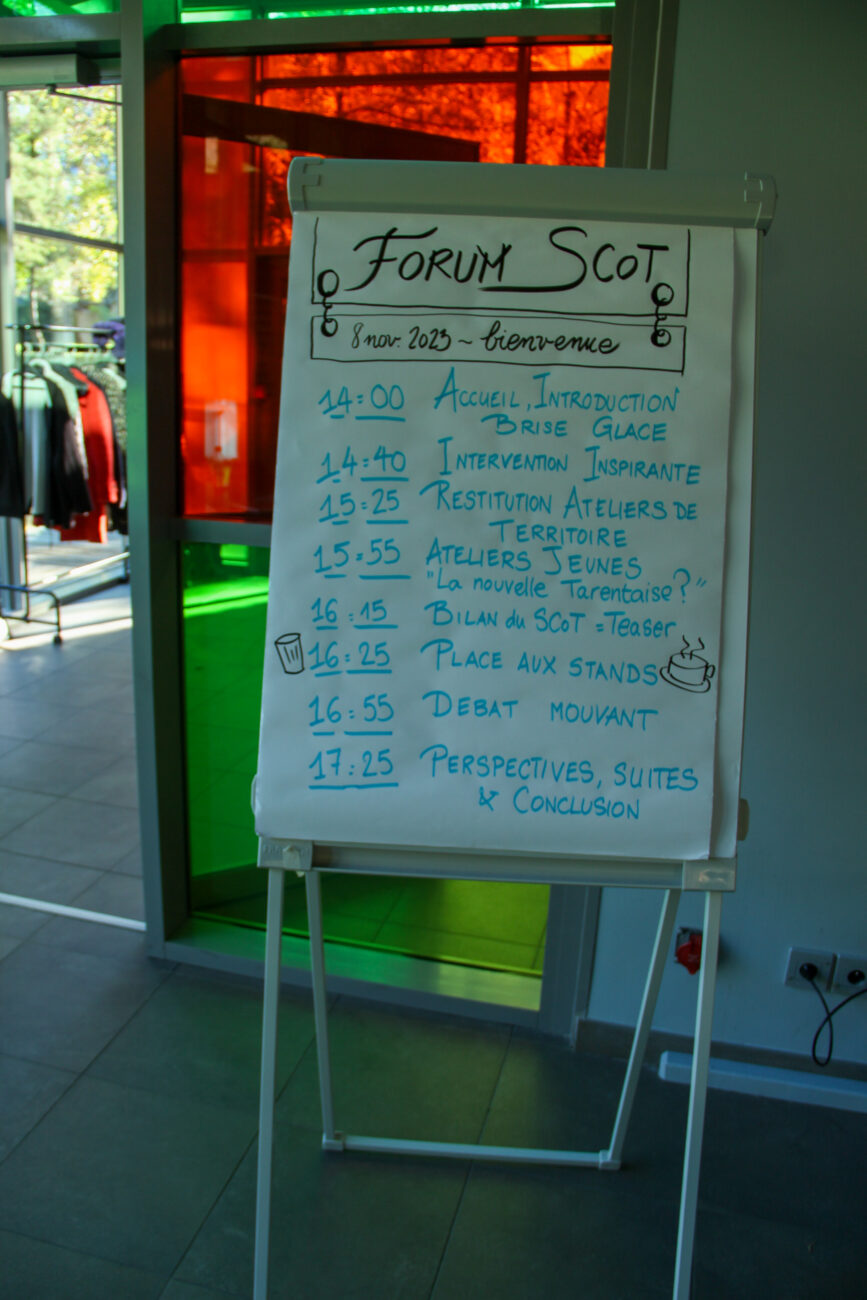 FORUM SCOT
8 nov. 2023 ~ bienvenue
14:00 ACCUEIL, INTRODUCTION
BRISE GLACE
14:40 INTERVENTION INSPIRANTE
15:25 RESTITUTION ATELIERS DE
TERRITOIRE
15:55 ATELIERS JEUNES
"La nouvelle Tarentaise?"
16:15 BILAN du SCOT = Teaser
16:25 PLACE AUX STANDS
16:55 DEBAT MOUVANT
17:25 PERSPECTIVES, SUITES
& CONCLUSION